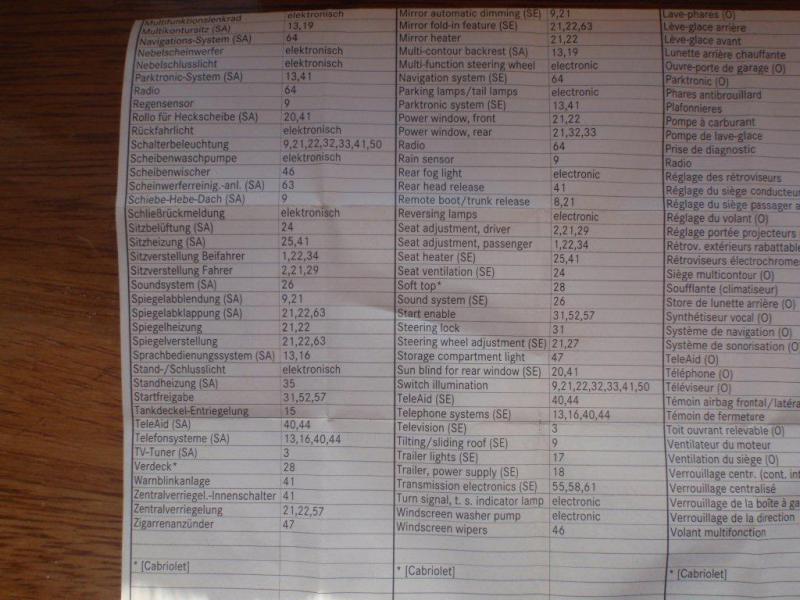 Multifunktionslenkrad elektronisch
Multikontursitz (SA) 13,19
Navigations-System (SA) 64
Nebelscheinwerfer elektronisch
Nebelschlusslicht elektronisch
Parktronic-System (SA) 13,41
Radio 64
Regensensor 9
Rollo für Heckscheibe (SA) 20,41
Rückfahrlicht elektronisch
Schalterbeleuchtung 9,21,22,32,33,41,50
Scheibenwaschpumpe elektronisch
Scheibenwischer 46
Scheinwerferreinig.-anl. (SA) 63
Schiebe-Hebe-Dach (SA) 9
Schließrückmeldung elektronisch
Sitzbelüftung (SA) 24
Sitzheizung (SA) 25,41
Sitzverstellung Beifahrer 1,22,34
Sitzverstellung Fahrer 2,21,29
Soundsystem (SA) 26
Spiegelabblendung (SA) 9,21
Spiegelabklappung (SA) 21,22,63
Spiegelheizung 21,22
Spiegelverstellung 21,22,63
Sprachbedienungssystem (SA) 13,16
Stand-/Schlusslicht elektronisch
Standheizung (SA) 35
Startfreigabe 31,52,57
Tankdeckel-Entriegelung 15
TeleAid (SA) 40,44
Telefonsysteme (SA) 13,16,40,44
TV-Tuner (SA) 3
Verdeck* 28
Warnblinkanlage 41
Zentralverriegel.-Innenschalter 41
Zentralverriegelung 21,22,57
Zigarrenanzünder 47
* [Cabriolet]
Mirror automatic dimming (SE) 9,21
Mirror fold-in feature (SE) 21,22,63
Mirror heater 21,22
Multi-contour backrest (SA) 13,19
Multi-function steering wheel electronic
Navigation system (SE) 64
Parking lamps/tail lamps electronic
Parktronic system (SE) 13,41
Power window, front 21,22
Power window, rear 21,32,33
Radio 64
Rain sensor 9
Rear fog light electronic
Rear head release 41
Remote boot/trunk release 8,21
Reversing lamps electronic
Seat adjustment, driver 2,21,29
Seat adjustment, passenger 1,22,34
Seat heater (SE) 25,41
Seat ventilation (SE) 24
Soft top* 28
Sound system (SE) 26
Start enable 31,52,57
Steering lock 31
Steering wheel adjustment (SE) 21,27
Storage compartment light 47
Sun blind for rear window (SE) 20,41
Switch illumination 9,21,22,32,33,41,50
TeleAid (SE) 40,44
Telephone systems (SE) 13,16,40,44
Television (SE) 3
Tilting/sliding roof (SE) 9
Trailer lights (SE) 17
Trailer, power supply (SE) 18
Transmission electronics (SE) 55,58,61
Turn signal, t. s. indicator lamp electronic
Windscreen washer pump electronic
Windscreen wipers 46
* [Cabriolet]
Lave-phares (O)
Lève-glace arrière
Lève-glace avant
Lunette arrière chauffante
Ouvre-porte de garage (O)
Parktronic (O)
Phares antibrouillard
Plafonnieres
Pompe à carburant
Pompe de lave-glace
Prise de diagnostic
Radio
Réglage des rétroviseurs
Réglage du siège conducteu
Réglage du siège passager a
Réglage du volant (O)
Réglage portée projecteurs
Rétrov. extérieurs rabattable
Rétroviseurs électrochromes
Siège multicontour (O)
Soufflante (climatiseur)
Store de lunette arrière (O)
Synthétiseur vocal (O)
Système de navigation (O)
Système de sonorisation (O)
TeleAid (O)
Téléphone (O)
Téléviseur (O)
Témoin airbag frontal/latéra
Témoin de fermeture
Toit ouvrant relevable (O)
Ventilateur du moteur
Ventilation du siège (O)
Verrouillage centr. (cont. int
Verrouillage centralisé
Verrouillage de la boîte à ga
Verrouillage de la direction
Volant multifonction
* [Cabriolet]